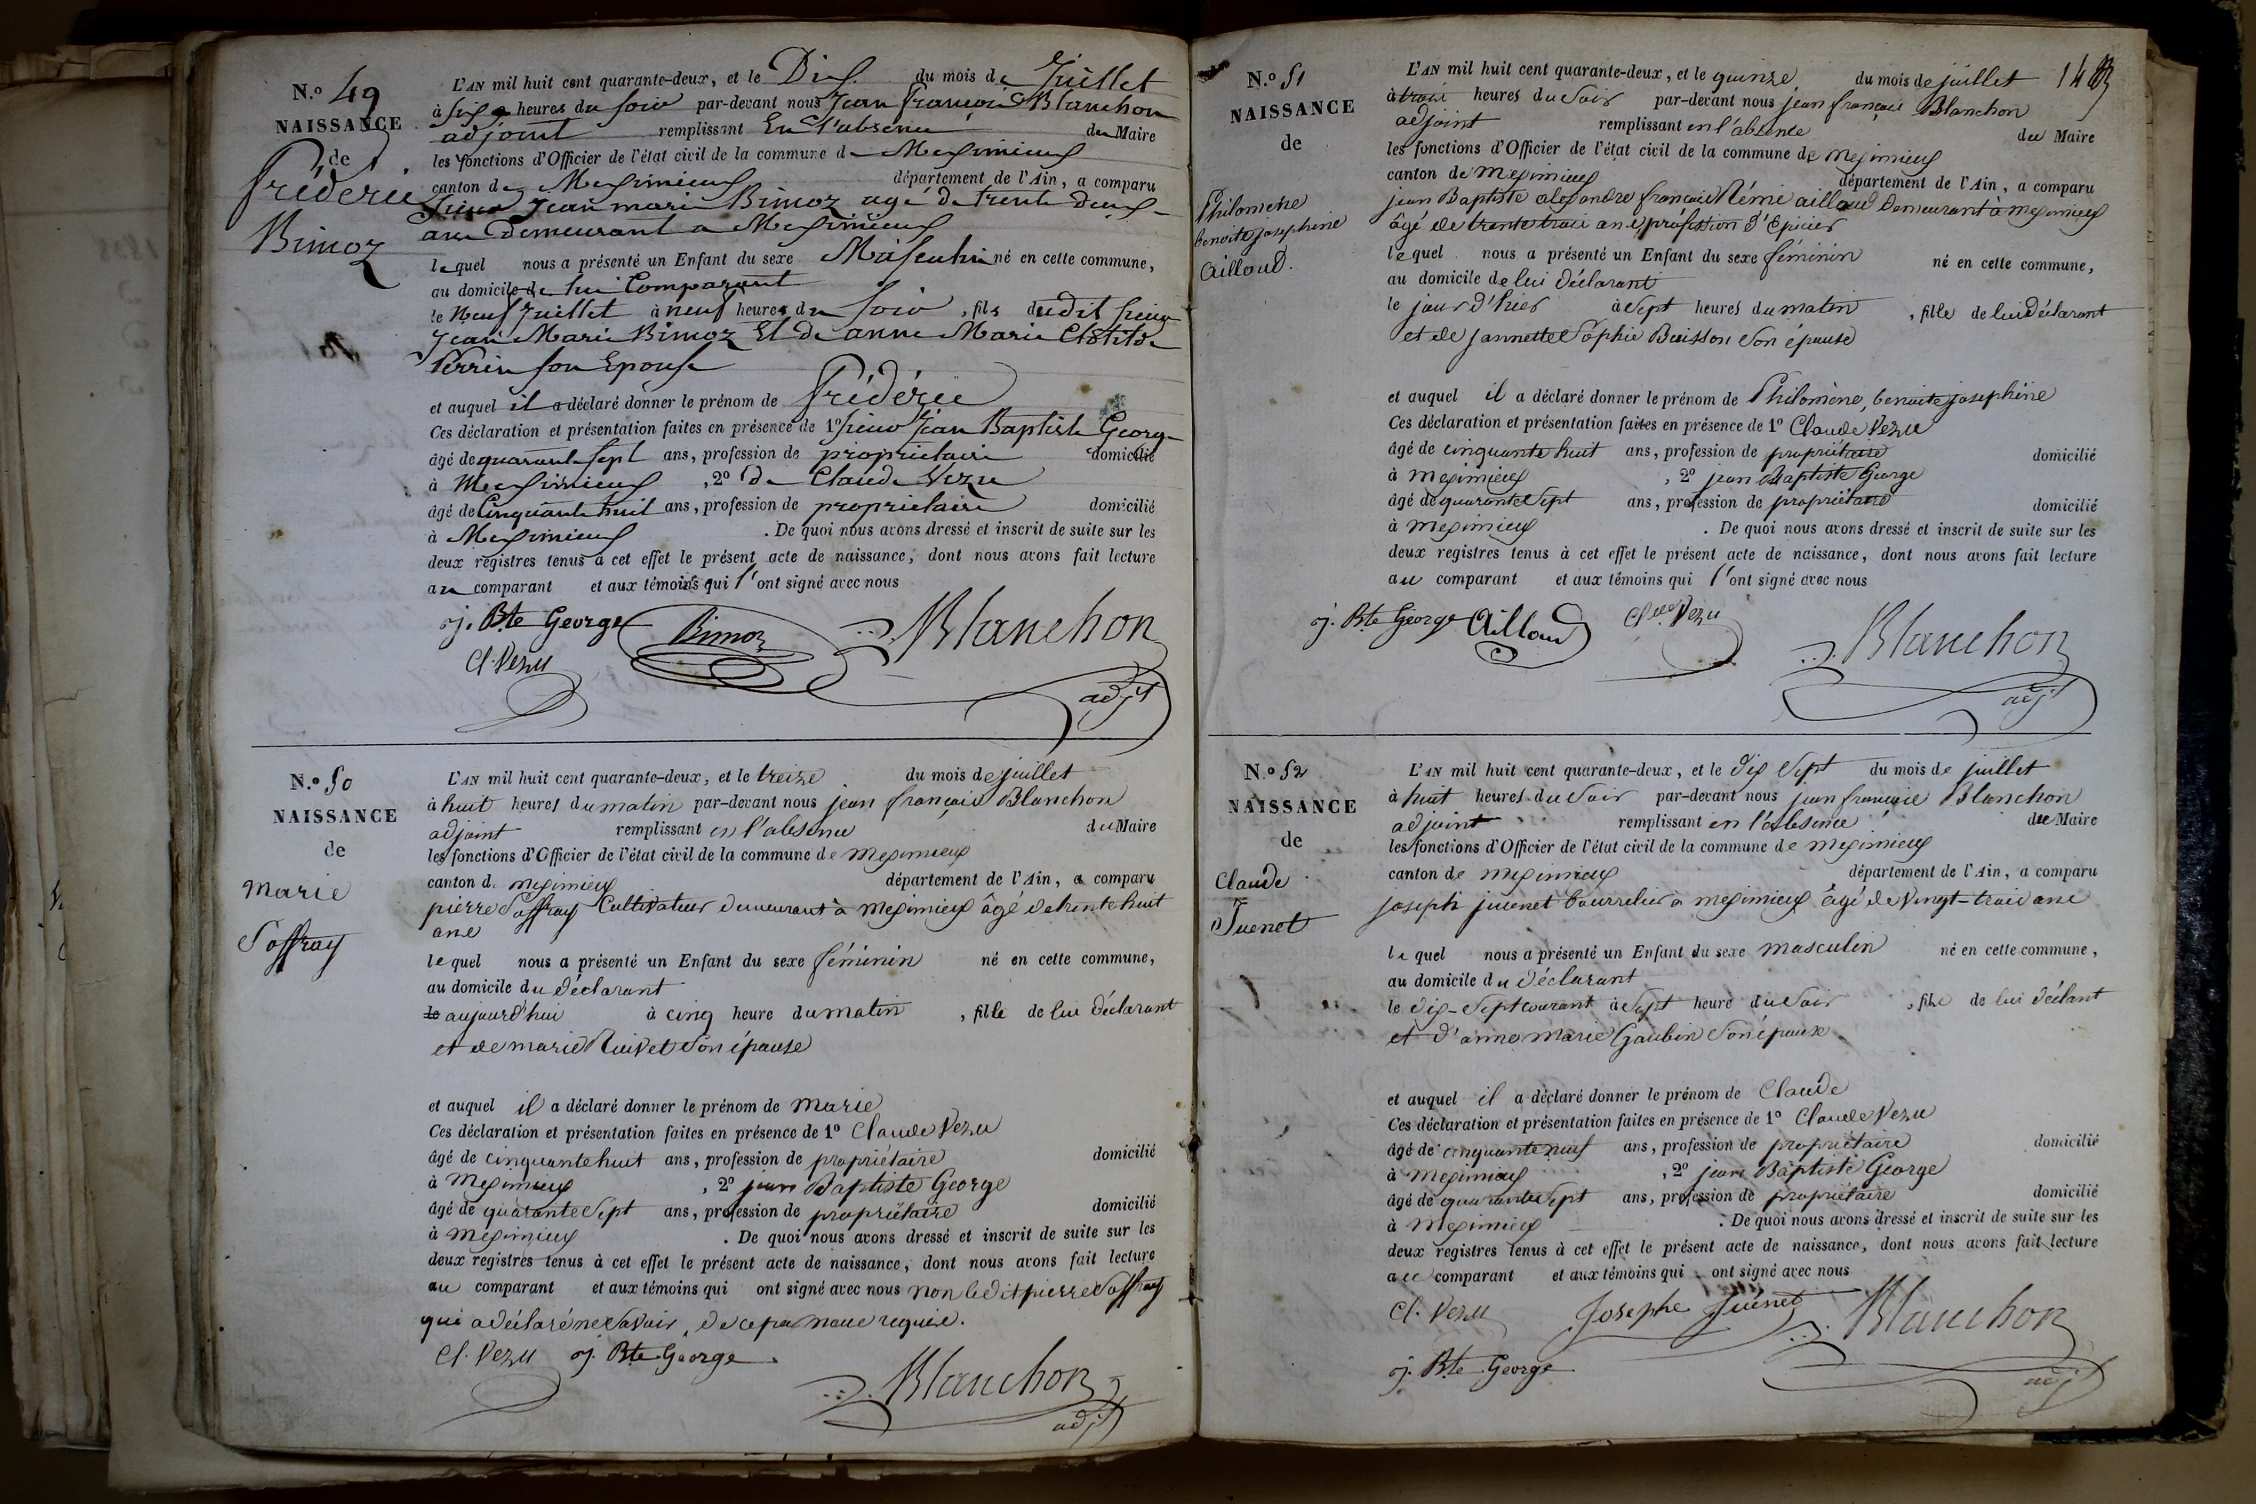 N.º 49
NAISSANCE
de
Fréderic
Bimoz
L'AN mil huit cent quarante-deux, et le Dix du mois de Juillet
à six heures du soir par-devant nous Jean François Blanchon
adjoint remplissant En l'absence du Maire
les fonctions d'Officier de l'état civil de la commune de Meximieux
canton de Meximieux département de l'Ain, a comparu
sieur Jean marie Bimoz agé de trente deux
ans demeurant a Meximieux
lequel nous a présenté un Enfant du sexe Masculin né en cette commune,
au domicile de lui Comparant
le Neuf Juillet à neuf heures du soir, fils dudit sieur
Jean Marie Bimoz Et de anne Marie Clotilde
Perrin son Epouse
et auquel il a déclaré donner le prénom de Fréderic
Ces déclaration et présentation faites en présence de 1º sieur Jean Baptiste George
âgé de quarante sept ans, profession de propriétaire domicilié
à Meximieux, 2º de Claude Vezu
âgé de Cinquante huit ans, profession de proprietaire domicilié
à Meximieux. De quoi nous avons dressé et inscrit de suite sur les
deux registres tenus à cet effet le présent acte de naissance, dont nous avons fait lecture
au comparant et aux témoins qui l'ont signé avec nous
j. Bte George Bimoz Blanchon
Cl. Vezu adjt
N.º 50
NAISSANCE
de
Marie
Soffray
L'AN mil huit cent quarante-deux, et le treize du mois de juillet
à huit heures du matin par-devant nous jean françois Blanchon
adjoint remplissant en l'absence du Maire
les fonctions d'Officier de l'état civil de la commune de meximieux
canton de meximieux département de l'Ain, a comparu
pierre Soffray Cultivateur demeurant à meximieux âgé de trente huit
ans
lequel nous a présenté un Enfant du sexe féminin né en cette commune,
au domicile du déclarant
le aujourd'hui à cinq heure du matin, fille de lui déclarant
et de marie Ruivet son épouse
et auquel il a déclaré donner le prénom de marie
Ces déclaration et présentation faites en présence de 1º Claude Vezu
âgé de cinquante huit ans, profession de propriétaire domicilié
à Meximieux, 2º jean Baptiste George
âgé de quarante sept ans, profession de propriétaire domicilié
à meximieux. De quoi nous avons dressé et inscrit de suite sur les
deux registres tenus à cet effet le présent acte de naissance, dont nous avons fait lecture
au comparant et aux témoins qui ont signé avec nous non ledit pierre Soffray
qui a déclaré ne savoir, de ce par nous requis.
Cl. Vezu j. Bte George
Blanchon
adjt
14
N.º 51
NAISSANCE
de
Philomène
benoite josephine
Ailloud.
L'AN mil huit cent quarante-deux, et le quinze du mois de juillet
à trois heures du soir par-devant nous jean françois Blanchon
adjoint remplissant en l'absence du Maire
les fonctions d'Officier de l'état civil de la commune de meximieux
canton de meximieux département de l'Ain, a comparu
jean Baptiste alexandre francois Rémie aillaud demeurant à meximieux
âgé de trente trois ans profession d'épicier
lequel nous a présenté un Enfant du sexe féminin né en cette commune,
au domicile de lui déclarant
le jour d'hier à sept heures du matin, fille de lui déclarant
et de jannette Sophie Buisson son épouse
et auquel il a déclaré donner le prénom de Philomène, benoite josephine
Ces déclaration et présentation faites en présence de 1º Claude Vezu
âgé de cinquante huit ans, profession de propriétaire domicilié
à meximieux, 2º jean Baptiste George
âgé de quarante sept ans, profession de propriétaire domicilié
à meximieux. De quoi nous avons dressé et inscrit de suite sur les
deux registres tenus à cet effet le présent acte de naissance, dont nous avons fait lecture
au comparant et aux témoins qui l'ont signé avec nous
j. Bte George Ailloud Cl. Vezu
Blanchon
adjt
N.º 52
NAISSANCE
de
Claude
Juenet
L'AN mil huit cent quarante-deux, et le dix sept du mois de juillet
à huit heures du soir par-devant nous jean françois Blanchon
adjoint remplissant en l'absence du Maire
les fonctions d'Officier de l'état civil de la commune de meximieux
canton de meximieux département de l'Ain, a comparu
joseph juenet bourrelier a meximieux âgé de vingt-trois ans
lequel nous a présenté un Enfant du sexe masculin né en cette commune,
au domicile du déclarant
le dix-sept courant à sept heure du soir, fils de lui déclant
et d'anne marie Gaubin son épouse
et auquel il a déclaré donner le prénom de Claude
Ces déclaration et présentation faites en présence de 1º Claude Vezu
âgé de cinquante neuf ans, profession de propriétaire domicilié
à meximieux, 2º jean Baptiste George
âgé de quarante sept ans, profession de propriétaire domicilié
à meximieux. De quoi nous avons dressé et inscrit de suite sur les
deux registres tenus à cet effet le présent acte de naissance, dont nous avons fait lecture
au comparant et aux témoins qui ont signé avec nous
Cl. Vezu Josephe Juénet Blanchon
j. Bte George adjt